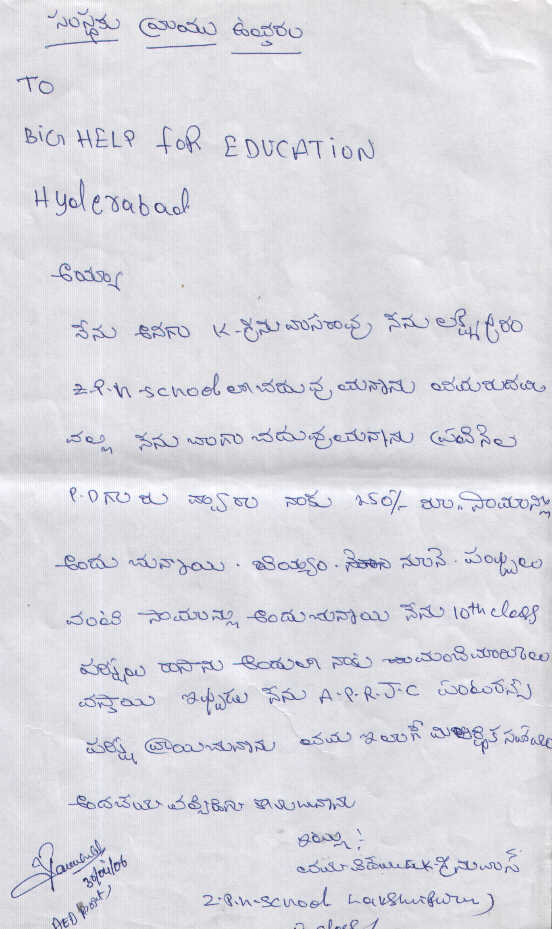 సంస్థకు వ్రాయు ఉత్తరం
TO
BIG HELP foR EDUCATION
Hyderabad
అయ్యా
నేను అనగా K. శ్రీనువాసరావు నేను లక్ష్మీపురం
Z.P.H-school లో చదువుతున్నాను
వల్ల నేను బాగా చదువుతున్నాను ప్రతినెల
P.D గారు ద్వారా నాకు 250/- రూ. సామాన్లు
అందుచున్నాయి. బియ్యం. నూనె. పప్పులు
వంటి సామాన్లు అందుచున్నాయి నేను 10th class
పరీక్షలు రాసాను అందులో నాకు మంచి మార్కులు
వస్తాయి ఇప్పుడు నేను A.P.R.J.C ఎంటరన్స్
పరీక్ష వ్రాయుచున్నాను ఇలాగే
అందచేయ కోరుచున్నాను
ఇట్లు!
K. శ్రీనువాస్
Z.P.H-SCHOOL Lakshmipuram)
30/04/06